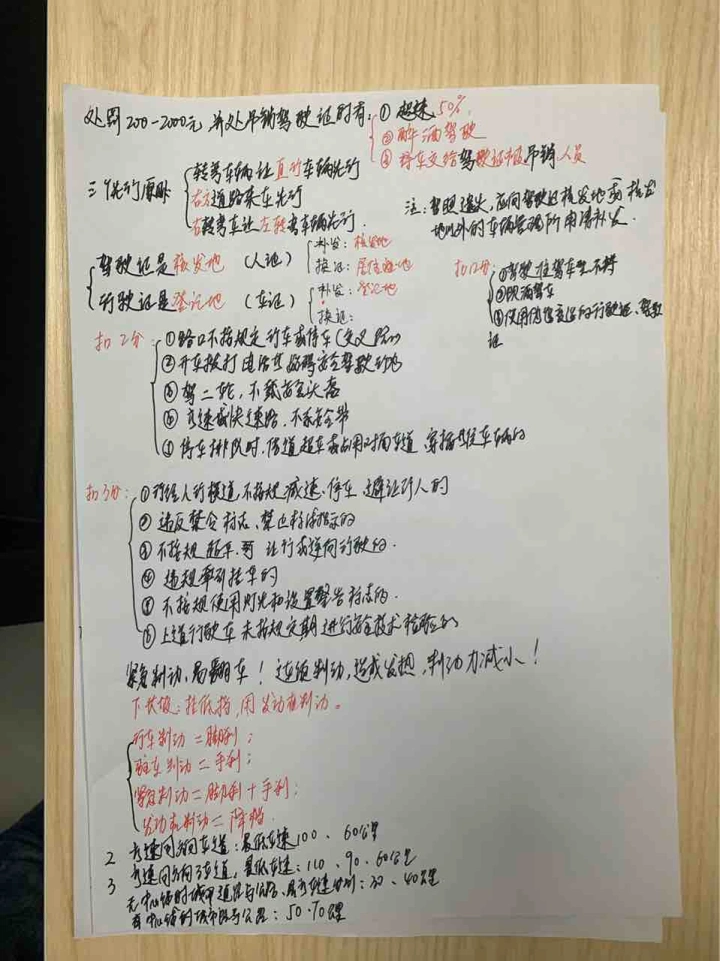 处罚200-2000元 并处吊销驾驶证的有: ① 超速50%
② 醉酒驾驶
③ 将车交给驾驶证被吊销人员
三个先行原则
转弯车辆让直行车辆先行
右方道路来车先行
右转弯车让左转弯车辆先行.
注: 驾照遗失, 应向驾驶证核发地或核发
地以外的车辆管理所申请补发.
驾驶证是核发地 (人证) 补发: 核发地
换证: 居住地
行驶证是登记地 (车证) 补发: 登记地
换证:
扣12分: ①驾驶准驾车型不符
②饮酒驾车
③使用伪造变造的行驶证、驾驶
证
扣2分: ①路口不按规定行车或停车(交叉路口)
②开车拨打电话等妨碍安全驾驶的
③驾二轮, 不戴安全头盔
④高速或快速路, 不系安全带
⑤停车排队时, 借道超车或占用对面车道 穿插等候车辆的
扣3分: ①行经人行横道, 不按规减速、停车、避让行人的
② 违反禁令标志、禁止标线指示的
③ 不按规超车、让行或逆向行驶的.
④ 违规牵引挂车的
⑤ 不按规使用灯光和设置警告标志的.
⑥ 上道行驶车未按规定期进行安全技术检验的
紧急制动, 易翻车! 连续制动, 造成发热, 制动力减小!
下长坡: 挂低挡, 用发动机制动。
行车制动=脚刹;
驻车制动=手刹;
紧急制动=脚刹+手刹;
发动机制动=降档.
2 高速同方向车道: 最低车速100、60公里
3 高速同方向3车道, 最低车速: 110、90、60公里
无中心线的城市道路与公路, 最高车速分别: 30、40公里
有中心线的城市路与公路: 50、70公里